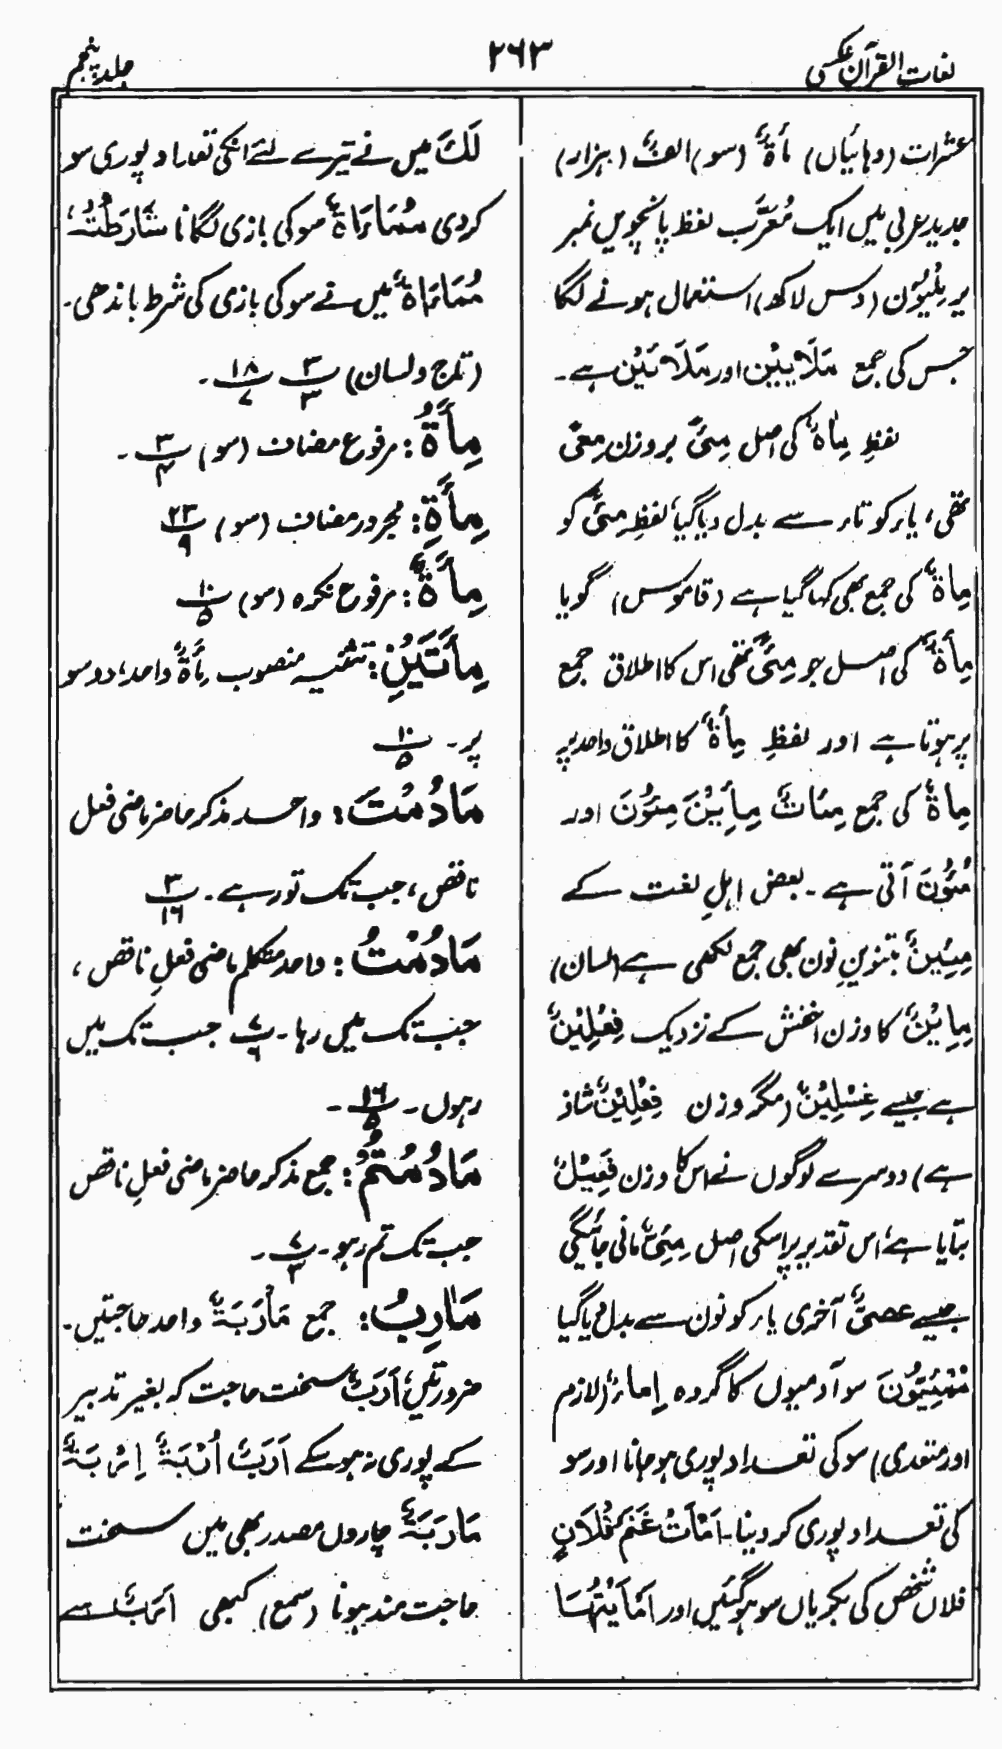 لغات القرآن عکسی
۲۶۳
جلد پنجم
عشرات (دہائیاں) مأۃٌ (سو) الفٌ (ہزار)
جدید عربی میں ایک مُعَرَّب لفظ پانچویں نمبر
پر مِلْیُوْن (دس لاکھ) استعمال ہونے لگا
جس کی جمع مَلَایِیْن اور مَلَائِیْن ہے۔
لفظِ مِاۃٌ کی اصل مِئیٌ بروزن مِعیٌ
تھی، یار کو تار سے بدل دیا گیا، لفظِ مِئیٌ کو
مِاۃٌ کی جمع بھی کہا گیا ہے (قاموس) گویا
مِأۃٌ کی اصل جو مِئیٌ تھی اس کا اطلاق جمع
پر ہوتا ہے اور لفظِ مِأۃٌ کا اطلاق واحد پر
مِاۃٌ کی جمع مِئَاتٌ مِأِیْنَ مِئُوْنَ اور
مُئُوْنَ آتی ہے۔ بعض اہلِ لغت نے
مِئِیْنٌ بتنوینِ نون بھی جمع لکھی ہے (لسان)
مِاِیْنٌ کا وزن اخفش کے نزدیک فِعْلِیْنٌ
ہے جیسے غِسْلِیْنٌ (مگر وزن فِعْلِیْنٌ شاذ
ہے) دوسرے لوگوں نے اس کا وزن فَعِیْلٌ
بتایا ہے، اس تقدیر پر اسکی اصل مِئِیٌّ مانی جائیگی
جیسے عصیٌّ آخری یار کو نون سے بدل دیا گیا
سو آدمیوں کا گروہ اِماءٌ (لازم
اور متعدی) سو کی تعداد پوری ہو جانا اور سو
کی تعداد پوری کر دینا۔ اَمْأَتْ غَنَمُ فُلَانٍ
فلاں شخص کی بکریاں سو ہو گئیں اور اَمْأَیْتُهَا
لَكَ میں نے تیرے لئے انکی تعداد پوری سو
کر دی مُمَاءَاۃٌ سو کی بازی لگانا شَارَطْتُہٗ
مُمَاءَاۃً میں نے سو کی بازی کی شرط باندھی۔
(تاج ولسان) ۳/۳ ۱۸/۷۔
مِأَۃُ: مرفوع مضاف (سو) ۳/۴۔
مِأَۃِ: مجرور مضاف (سو) ۲۳/۹
مِأَۃٌ: مرفوع نکرہ (سو) ۱۰/۵
مِأَتَیْنِ: تثنیہ منصوب مِأَۃٌ واحد، دو سو
پر۔ ۱۰/۵
مَادُمْتَ: واحد مذکر حاضر ماضی فعل
ناقص، جب تک تو رہے۔ ۳/۱۶
مَادُمْتُ: واحد متکلم ماضی فعلِ ناقص،
جب تک میں رہا۔ ۷/۶ جب تک میں
رہوں۔ ۱۶/۵۔
مَادُمْتُمْ: جمع مذکر حاضر ماضی فعلِ ناقص
جب تک تم رہو۔ ۷/۳۔
مَاٰرِبُ: جمع مَأْرَبَۃٌ واحد حاجتیں۔
ضرورتیں، اَرَبٌ سخت حاجت کہ بغیر تدبیر
کے پوری نہ ہو سکے اَرَبٌ اُرْبَۃٌ اِرْبَۃٌ
مَارَبَۃٌ چاروں مصدر بھی ہیں سخت
حاجت مند ہونا (سمع) کبھی اَرَبٌ سے